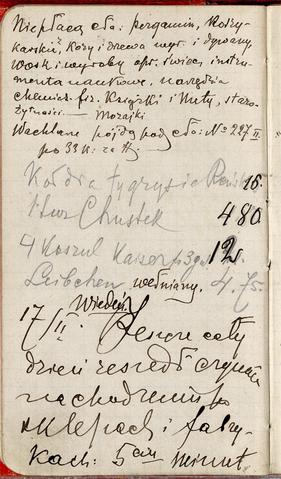 Nie płacą cła: pergamin, Kożu-
karskii, Kozy i drzewa wyr. i dywany
Wosk i wyroby opr. świec, instru-
menta naukowe, narzędzia
chemicz. fiz. Książki i Nuty, staro-
żytności — Mozajki
Wachlarze pójdą pod cło: No 227 II
po 33 k. za
Kołdra tygrysia 16.
Chustek 480
4 Koszul Kaiser p 3 12
Leibchen wełniany. 4.75.
Wiedeń
17/II. Jeszcze cały
dzień zeszedł
na chodzeniu po
sklepach i fabry-
kach: 5 ciu minut